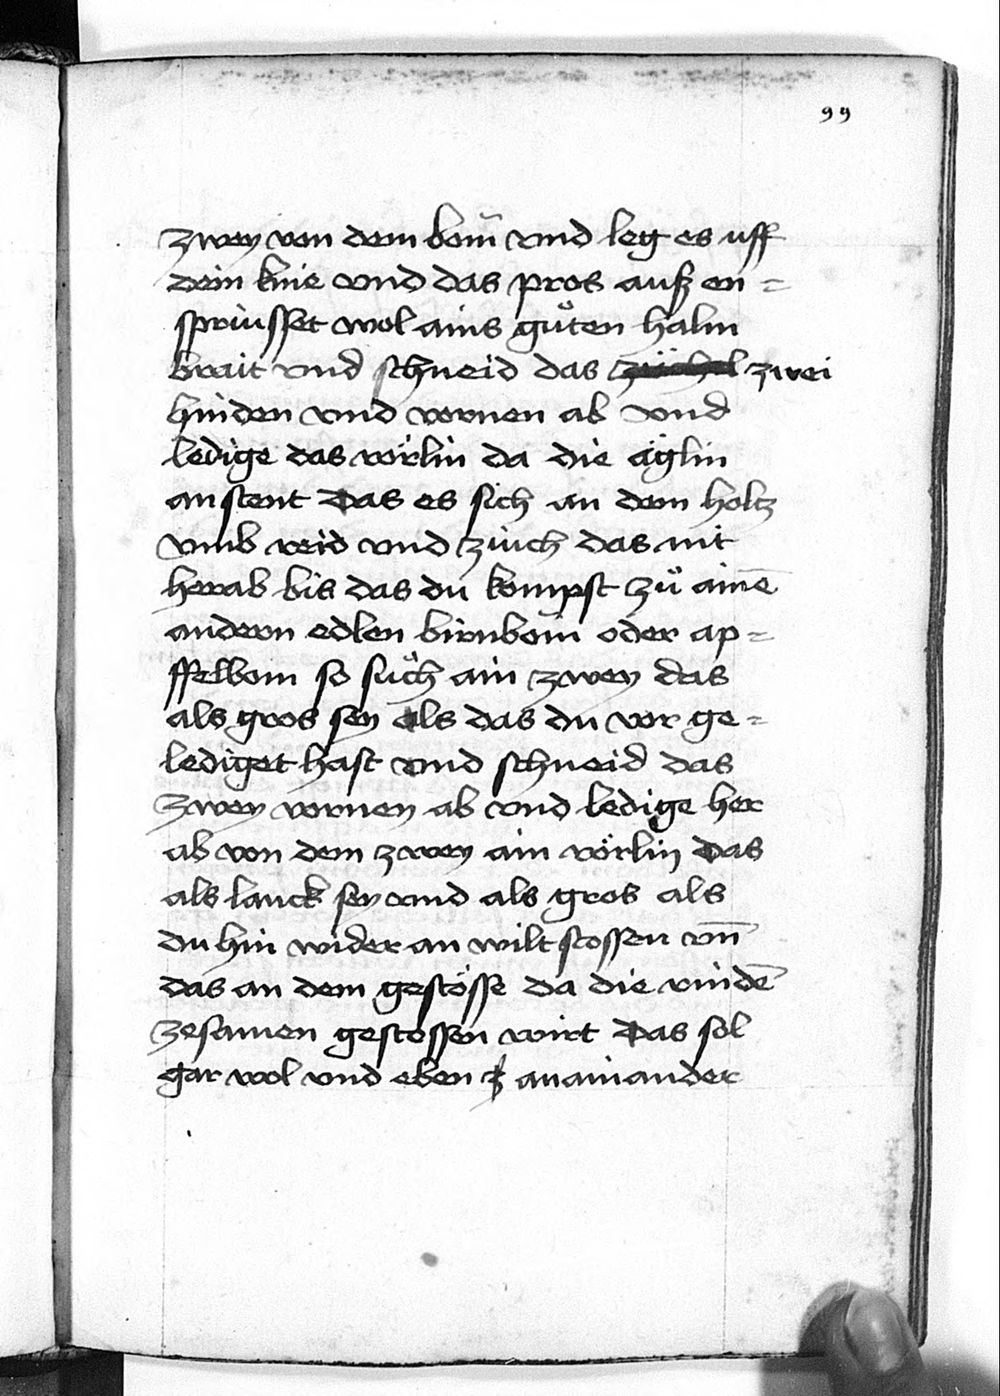 99
zwey von dem bom̄ vnd leg es uff
dein knie vnd das pros auß en =
spriusset wol ains guͦten halm
brait vnd schneid das zwei
hinden vnd vornen ab vnd
ledige das rörlin da die äglin
an stent Das es sich an dem holtz
vmb reid vnd ziuch das nit
herab bis das du kompst zuͦ ainē
andern edlen birnbom oder ap =
ffelbom so suͦch ain zwey das
als gros sey als das du vor ge =
lediget hast vnd schneid das
zwey vornen ab vnd ledige her
ab von dem zwey ain rörlin Das
als lanck sey vnd als gros als
du hin wider an wilt stossen vn̄
das an dem gestösse da die rindē
zesamen gestossen wirt Das sol
gar wol vnd eben an ainander